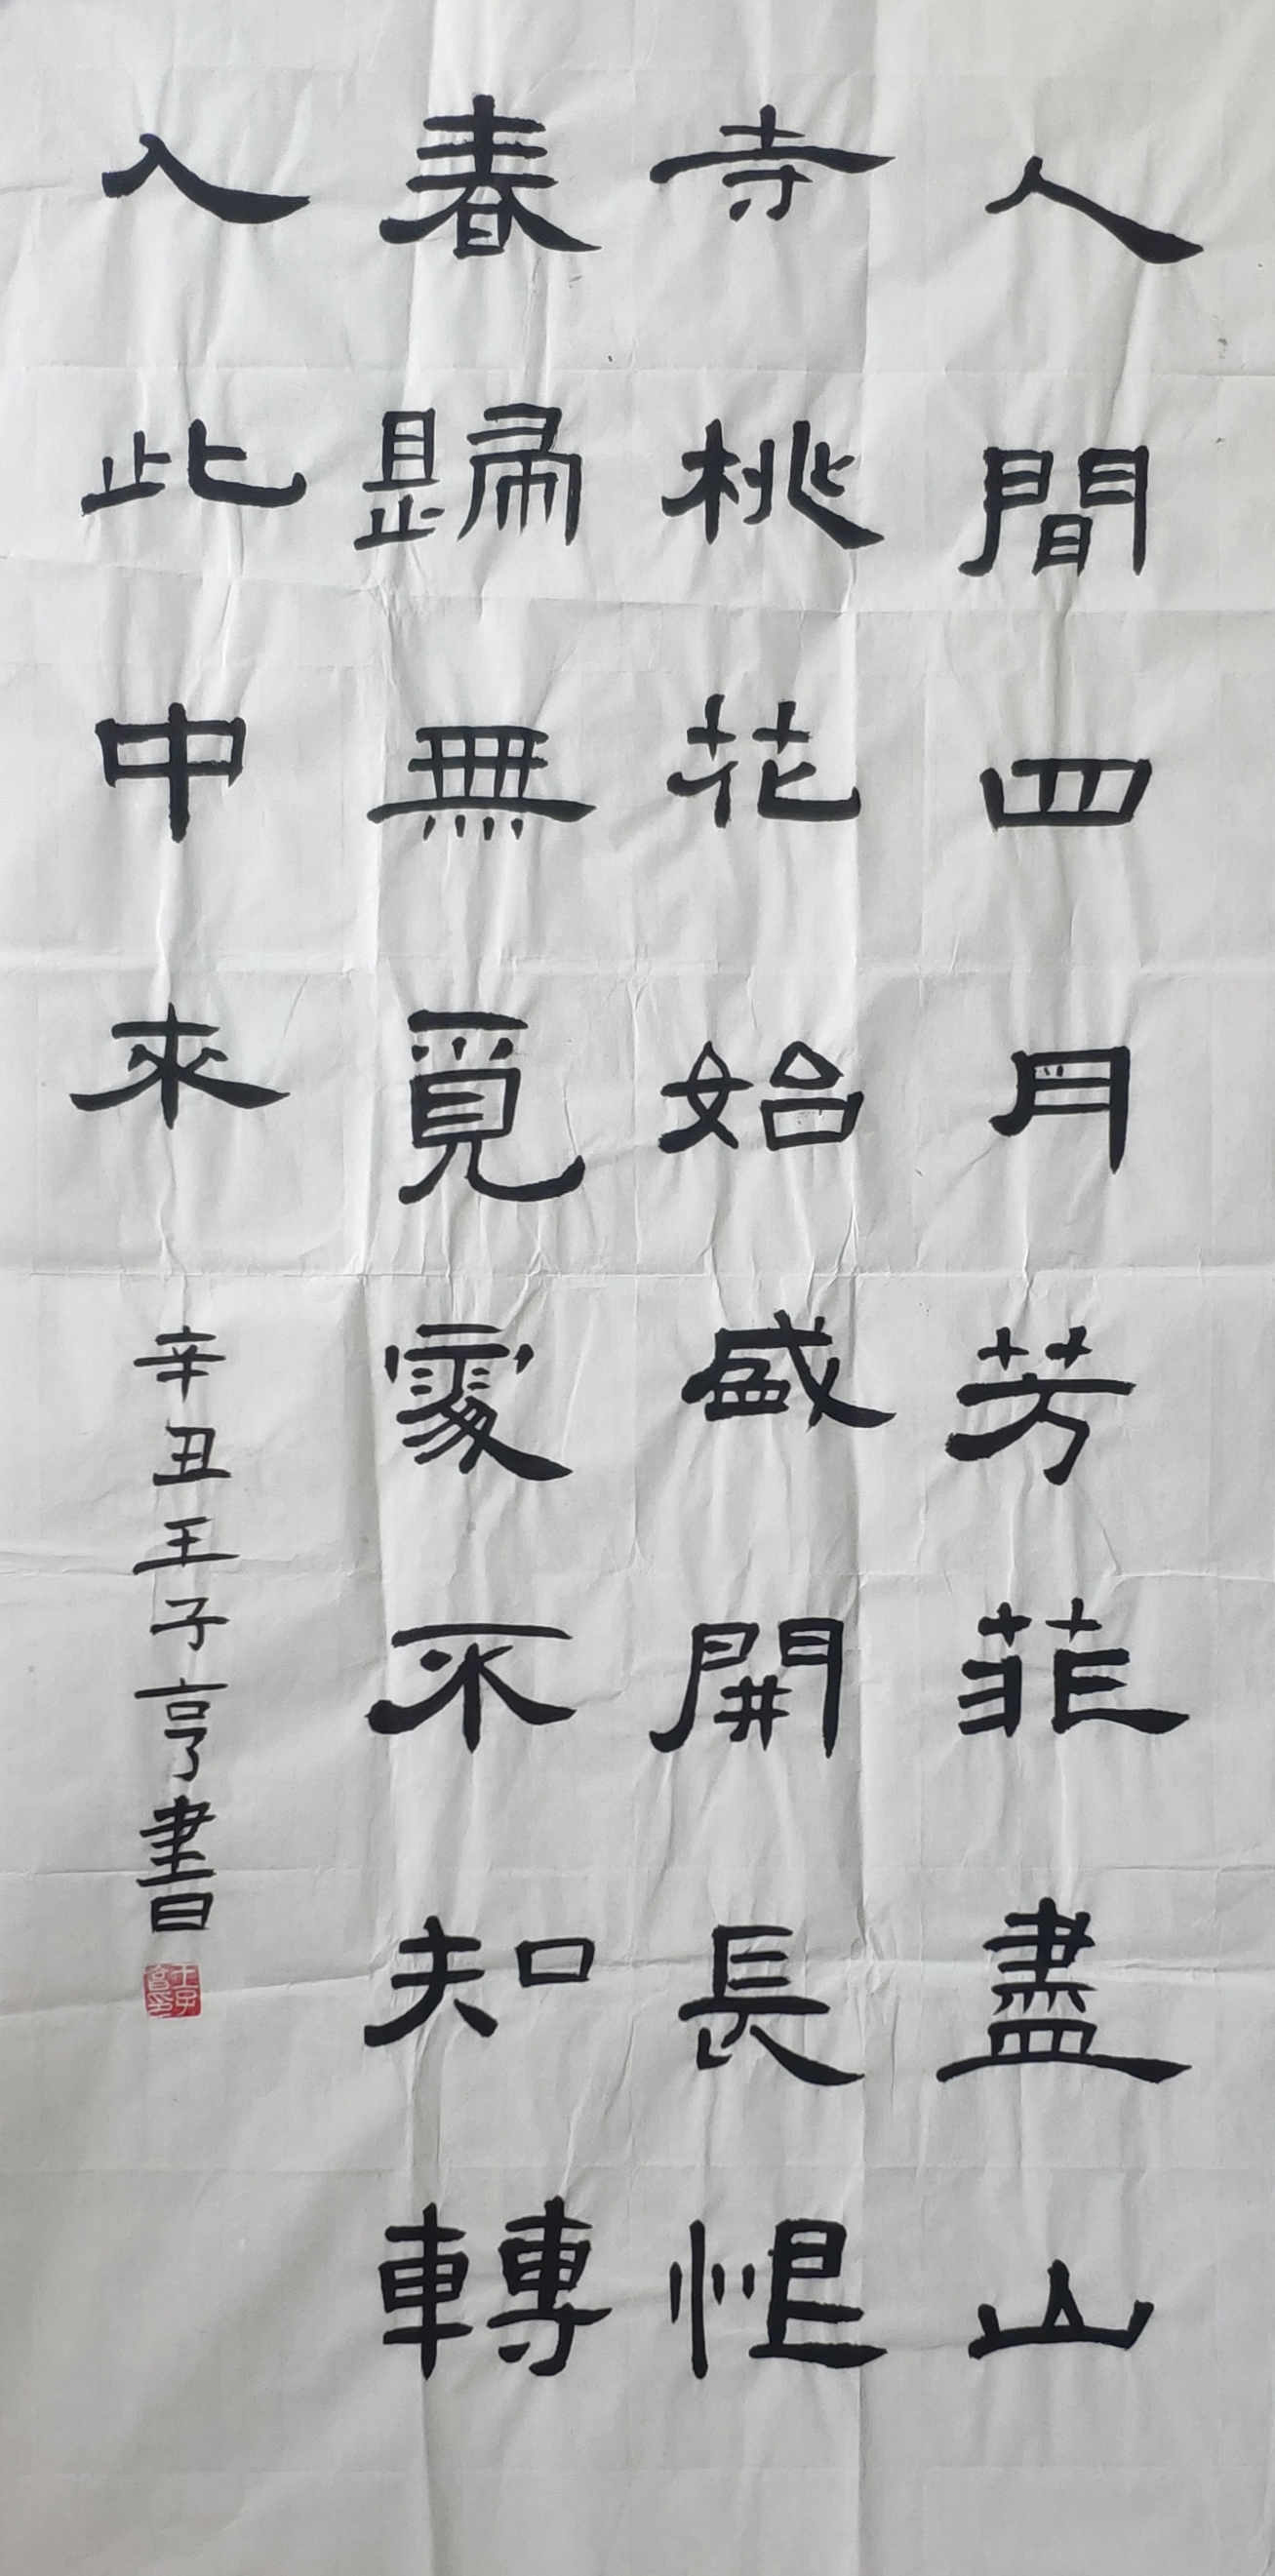 人間四月芳菲盡山
寺桃花始盛開長恨
春歸無覓處不知轉
入此中來
辛丑王子亨書